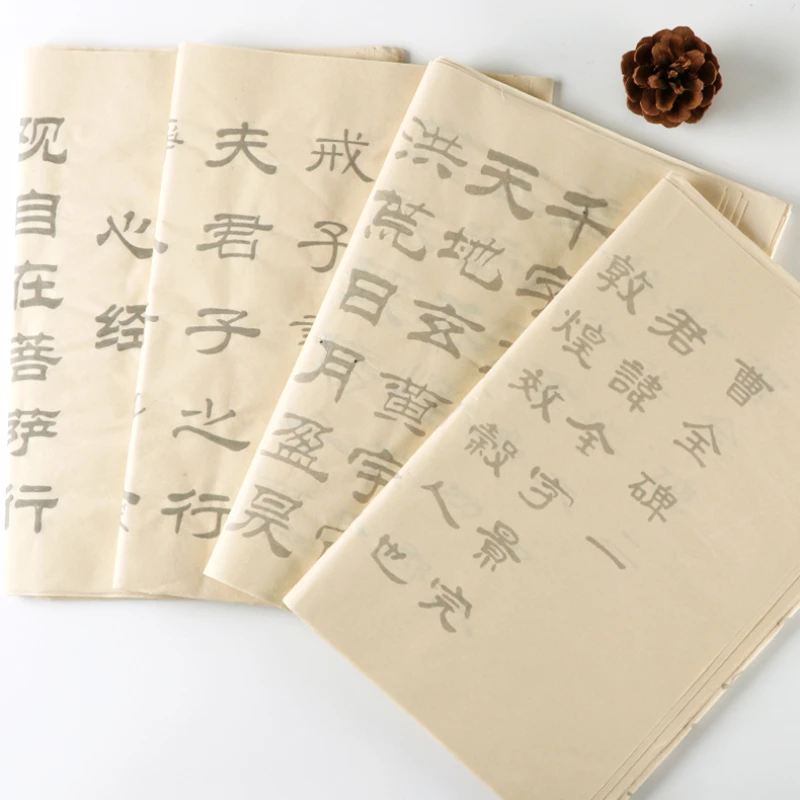 曹全碑一
君諱全字景完
敦煌效穀人也
千字
天地玄黄宇
洪荒日月盈昃
戒子
夫君子之行
心经
观自在菩萨行